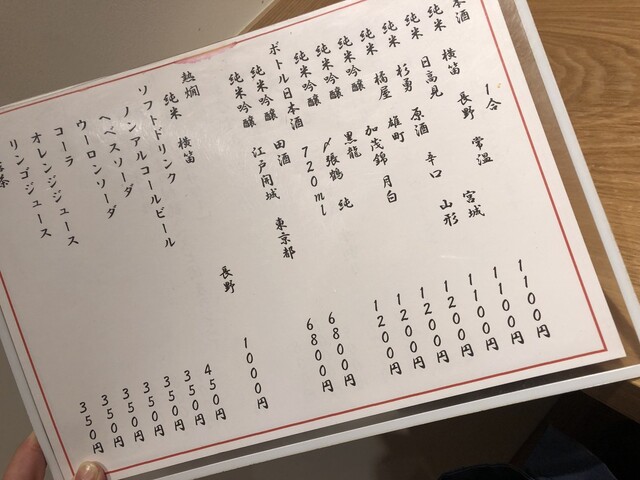 本酒 1合
純米 横笛 長野 常温 1100円
純米 日高見 宮城 1100円
純米 杉勇 原酒 辛口 山形 1100円
純米 橘屋 雄町 1200円
純米吟醸 加茂錦 月白 1200円
純米吟醸 黒龍 1200円
純米吟醸 〆張鶴 純 1200円
ボトル日本酒 720ml
純米吟醸 田酒 6800円
純米吟醸 江戸開城 東京都 6800円
熱燗
純米 横笛 長野 1000円
ソフトドリンク
ノンアルコールビール 450円
ヘベスソーダ 350円
ウーロンソーダ 350円
コーラ 350円
オレンジジュース 350円
リンゴジュース 350円